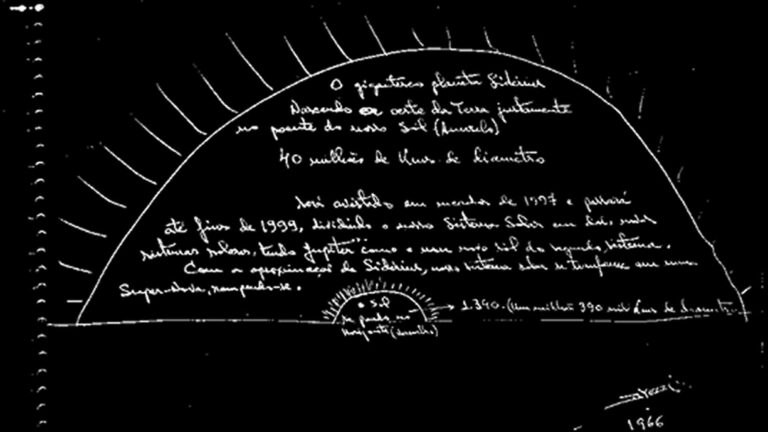 O gigantesco planeta Sidérius
Nascendo oeste da Terra justamente
no poente do nosso Sol (Amarelo)
40 milhões de Kms. de diametro
Será avistado em meados de 1997 e passará
até fins de 1999, dividindo o nosso Sistema Solar em dois, mais
sistemas solares, tendo Jupiter como o novo sol do segundo sistema.
Com a aproximação de Sidérius, nosso sistema solar se em uma
Super-Nova, rompendo-se.
o Sol
se pondo no
Horizonte (Amarelo)
1.390. (Um milhão 390 mil Kms de diametro
1966